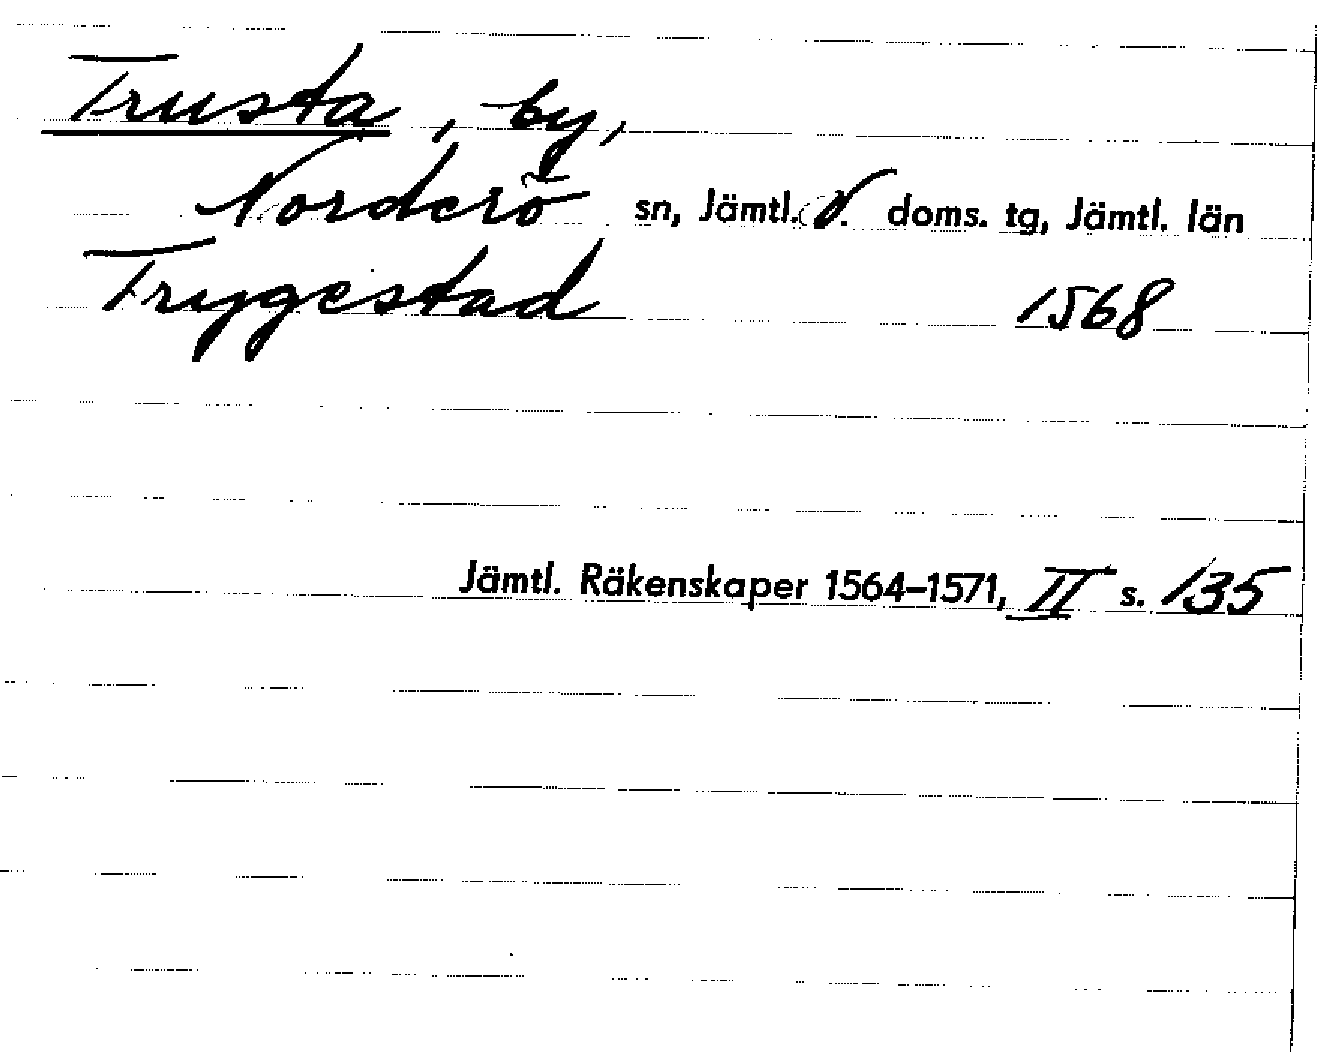 Trusta, by,
Norderö sn, Jämtl. V. doms. tg, Jämtl. län
Trygestad 1568
Jämtl. Räkenskaper 1564–1571, II s. 135